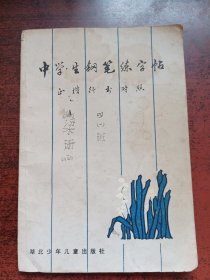 中学生钢笔练字帖
正楷行书对照
湖北少年儿童出版社